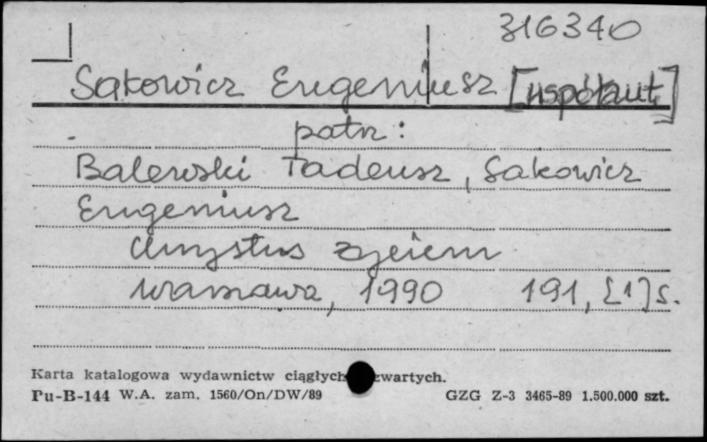 316340
Sakowicz Eugeniusz [współaut.]
patrz:
Balewski Tadeusz, Sakowicz
Eugeniusz
Chrystus życiem
Warszawa, 1990 191, [1] s.
Karta katalogowa wydawnictw ciągłych zwartych.
Pu-B-144 W.A. zam. 1560/On/DW/89 GZG Z-3 3465-89 1.500.000 szt.